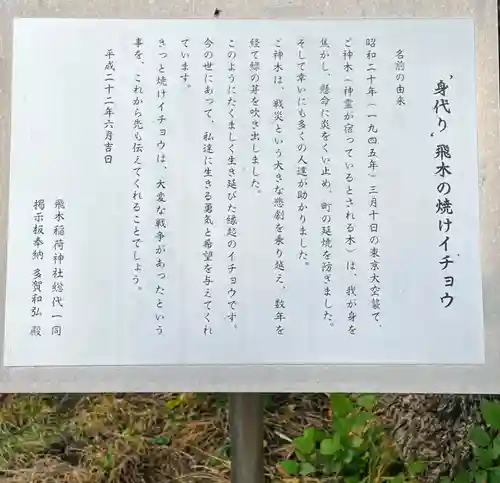 〝身代り〟飛木の焼けイチョウ
名前の由来
昭和二十年（一九四五年）三月十日の東京大空襲で、
ご神木（神霊が宿っているとされる木）は、我が身を
焦がし、懸命に炎をくい止め、町の延焼を防ぎました。
そして幸いにも多くの人達が助かりました。
ご神木は、戦災という大きな悲劇を乗り越え、数年を
経て緑の芽を吹き出しました。
このようにたくましく生き延びた縁起のイチョウです。
今の世にあって、私達に生きる勇気と希望を与えてくれ
ています。
きっと焼けイチョウは、大変な戦争があったという
事を、これから先も伝えてくれることでしょう。
平成二十二年六月吉日
飛木稲荷神社総代一同
掲示板奉納 多賀和弘 殿